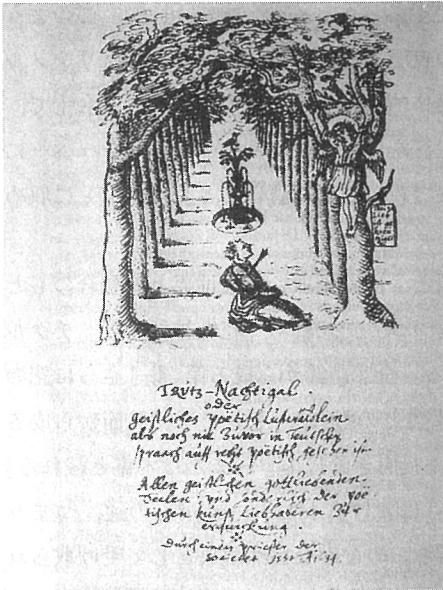 TRVTZ-Nachtigal.
oder
geistliches poëtisch Lustwäldlein
alß noch nie zuvor in Teutscher
spraach auff recht poëtisch gesehen ist.
Allen geistlichen gottliebenden
Seelen, vnd sonderlich der poë-
tischen kunst Liebhaberen zur
erquickung.
Durch einen priester der
Societet Jesu